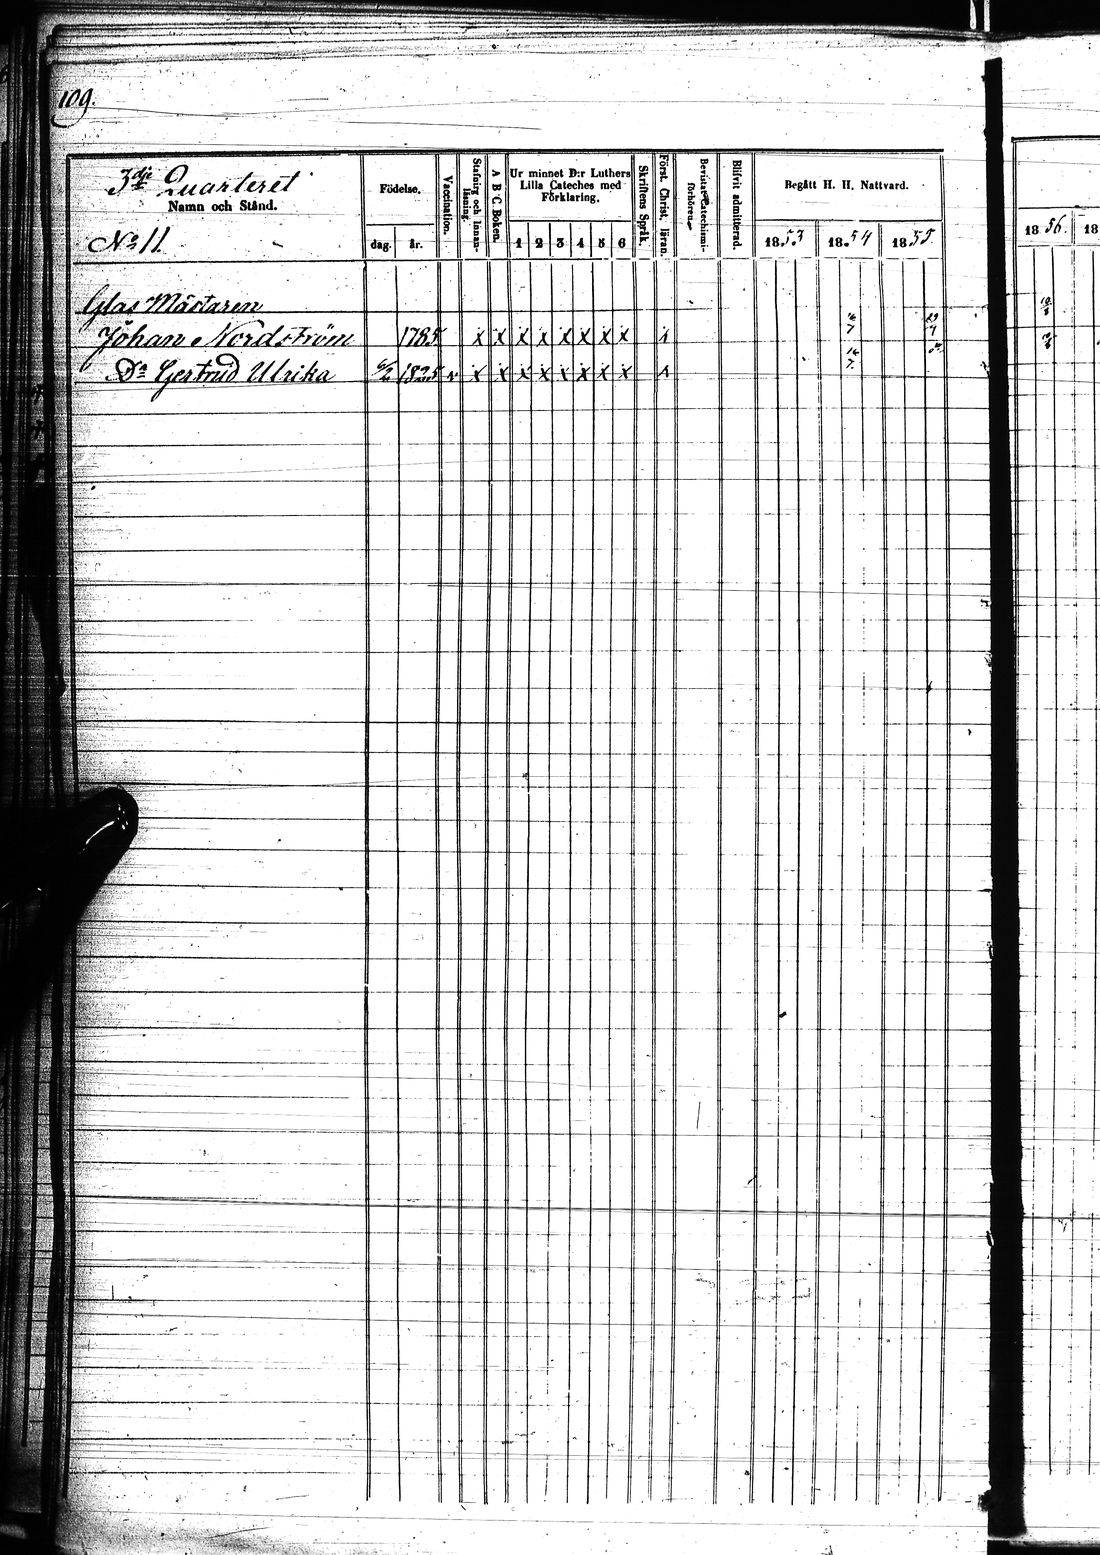 109.
3dje Quarteret
Namn och Stånd.
No 11
Födelse.
dag. år.
Vaccination.
Stafning och Innan-läsning.
A B C Boken.
Ur minnet D:r Luthers
Lilla Cateches med
Förklaring.
1 2 3 4 5 6
Skriftens Språk.
Först. Christ. läran.
Bevistat Catechismi-förhören.
Blifvit admitterad.
Begått H. H. Nattvard.
1853 1854 1855
1856. 18
Glas Mästaren
Johan Nordström 1785 x x x x x x x x
Dr Gertrud Ulrika 1825 x x x x x x x x